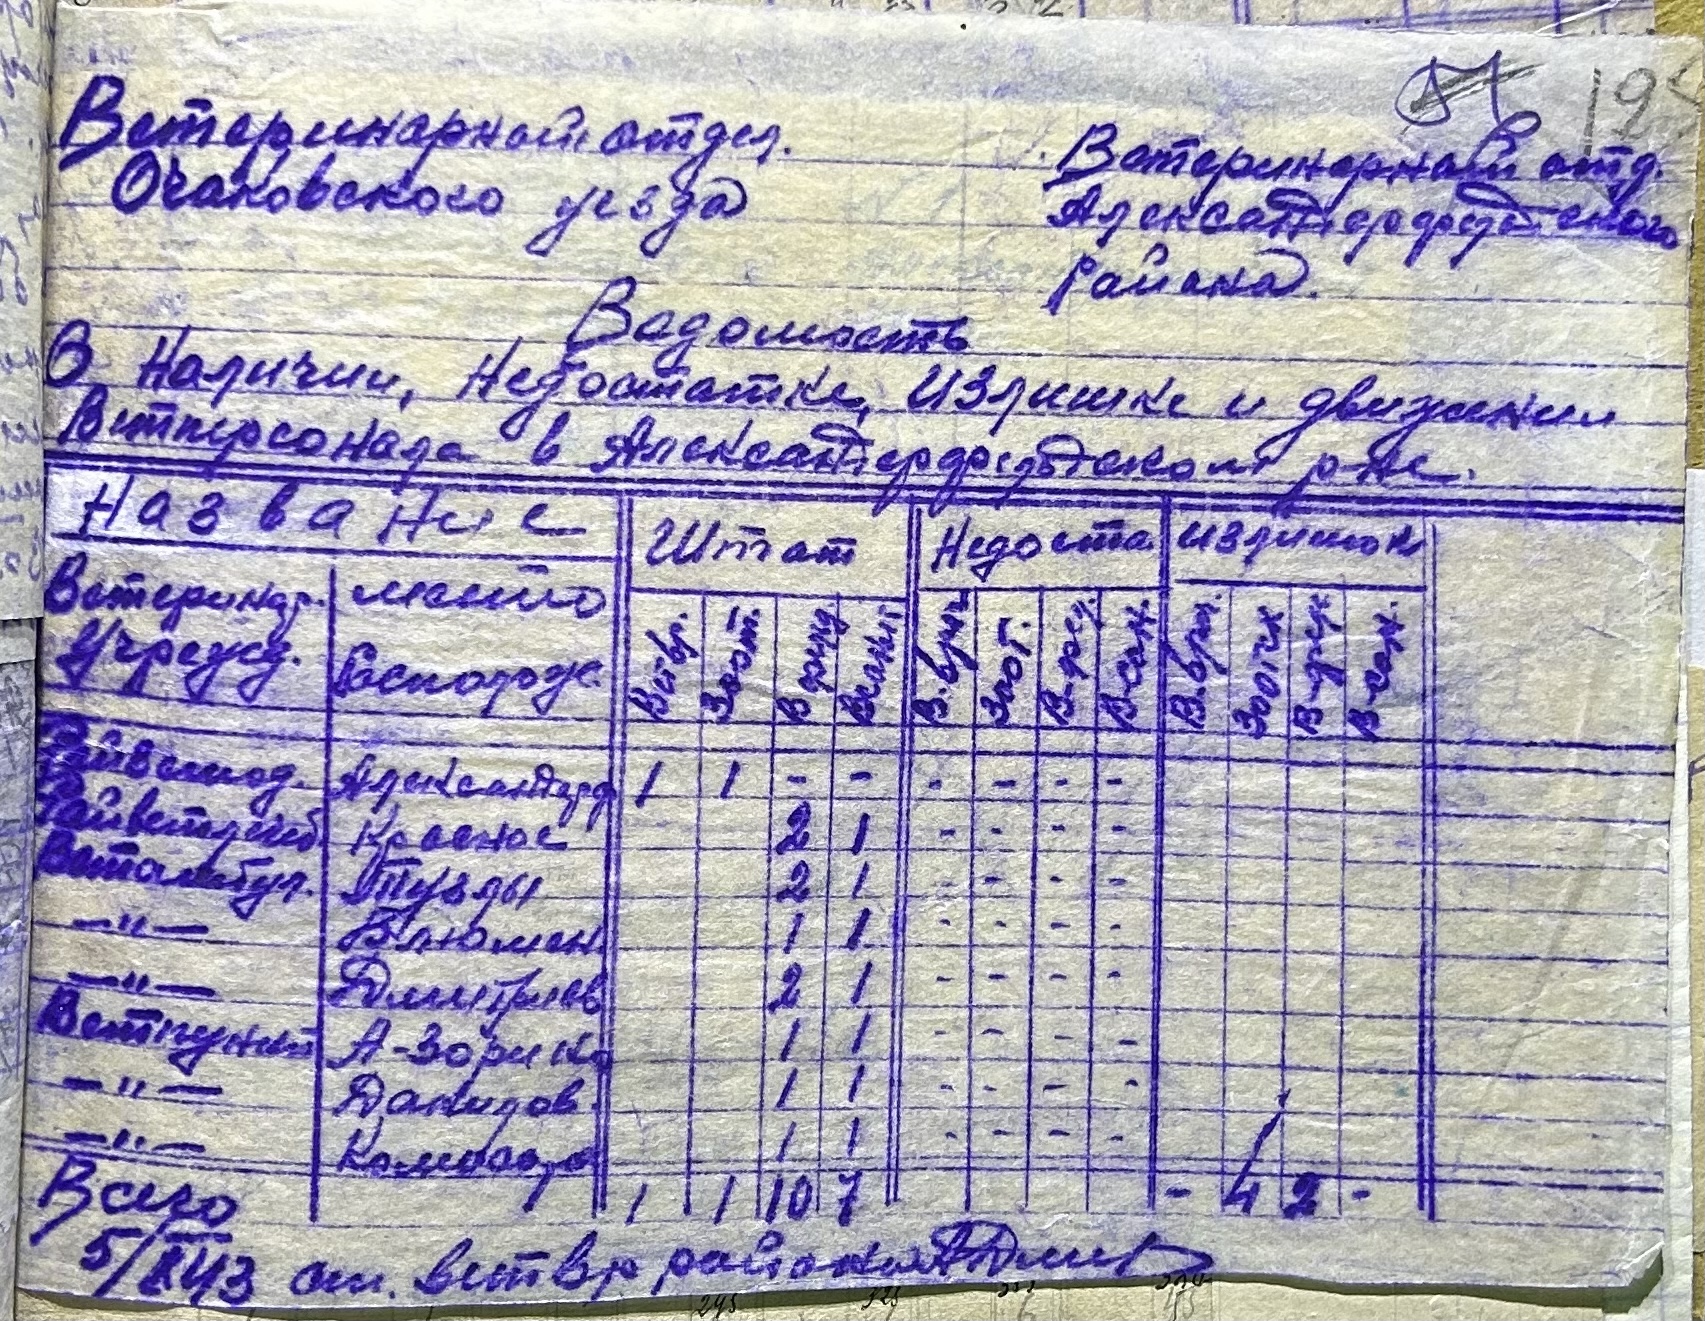 Ветеринарный отдел.
Очаковского уезда
Ветеринарный отд.
Александерфельдского
района.
Ведомость
О Наличии, Недостатке, излишке и движении
Ветперсонала в Александерфельдском р-не.
Название Штат Недоста излишок
Ветеринар. Учрежд. место Располож.
Ветвр. Зоот. В-фельд В-санит В-врач Зоот. В-фел. В-сан. В-врач. Зоотех В-фел В-сан.
Райветод. Александерф 1 1 - - - - - -
Райветлечеб. Красное 2 1 - - - -
Ветамбул. Тузлы 2 1 - - - -
-"- Блюмен 1 1 - - - -
-"- Дмитриев 2 1 - - - -
Ветпункт А-Зорино 1 1 - - - -
-"- Данилов. 1 1 - - - -
-"- 1 1 - - - -
Всего 1 1 10 7 - 4 2 -
5/XI 43 ст. ветвр. района